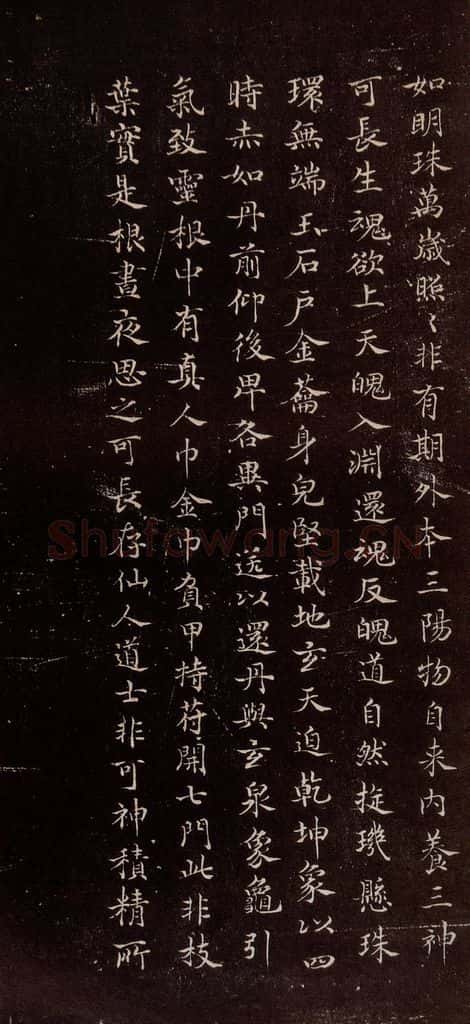 如明珠萬歲照〻非有期外本三陽物自来内養三神
可長生魂欲上天魄入淵還魂反魄道自然挻璣懸珠
環無端玉石戶金籥身皃堅載地玄天迫乾坤象以四
時赤如丹前仰後卑各異門送以還丹與玄泉象龜引
氣致靈根中有真人巾金巾負甲持符開七門此非枝
葉實是根晝夜思之可長存仙人道士非可神積精所
Shufawang.CN